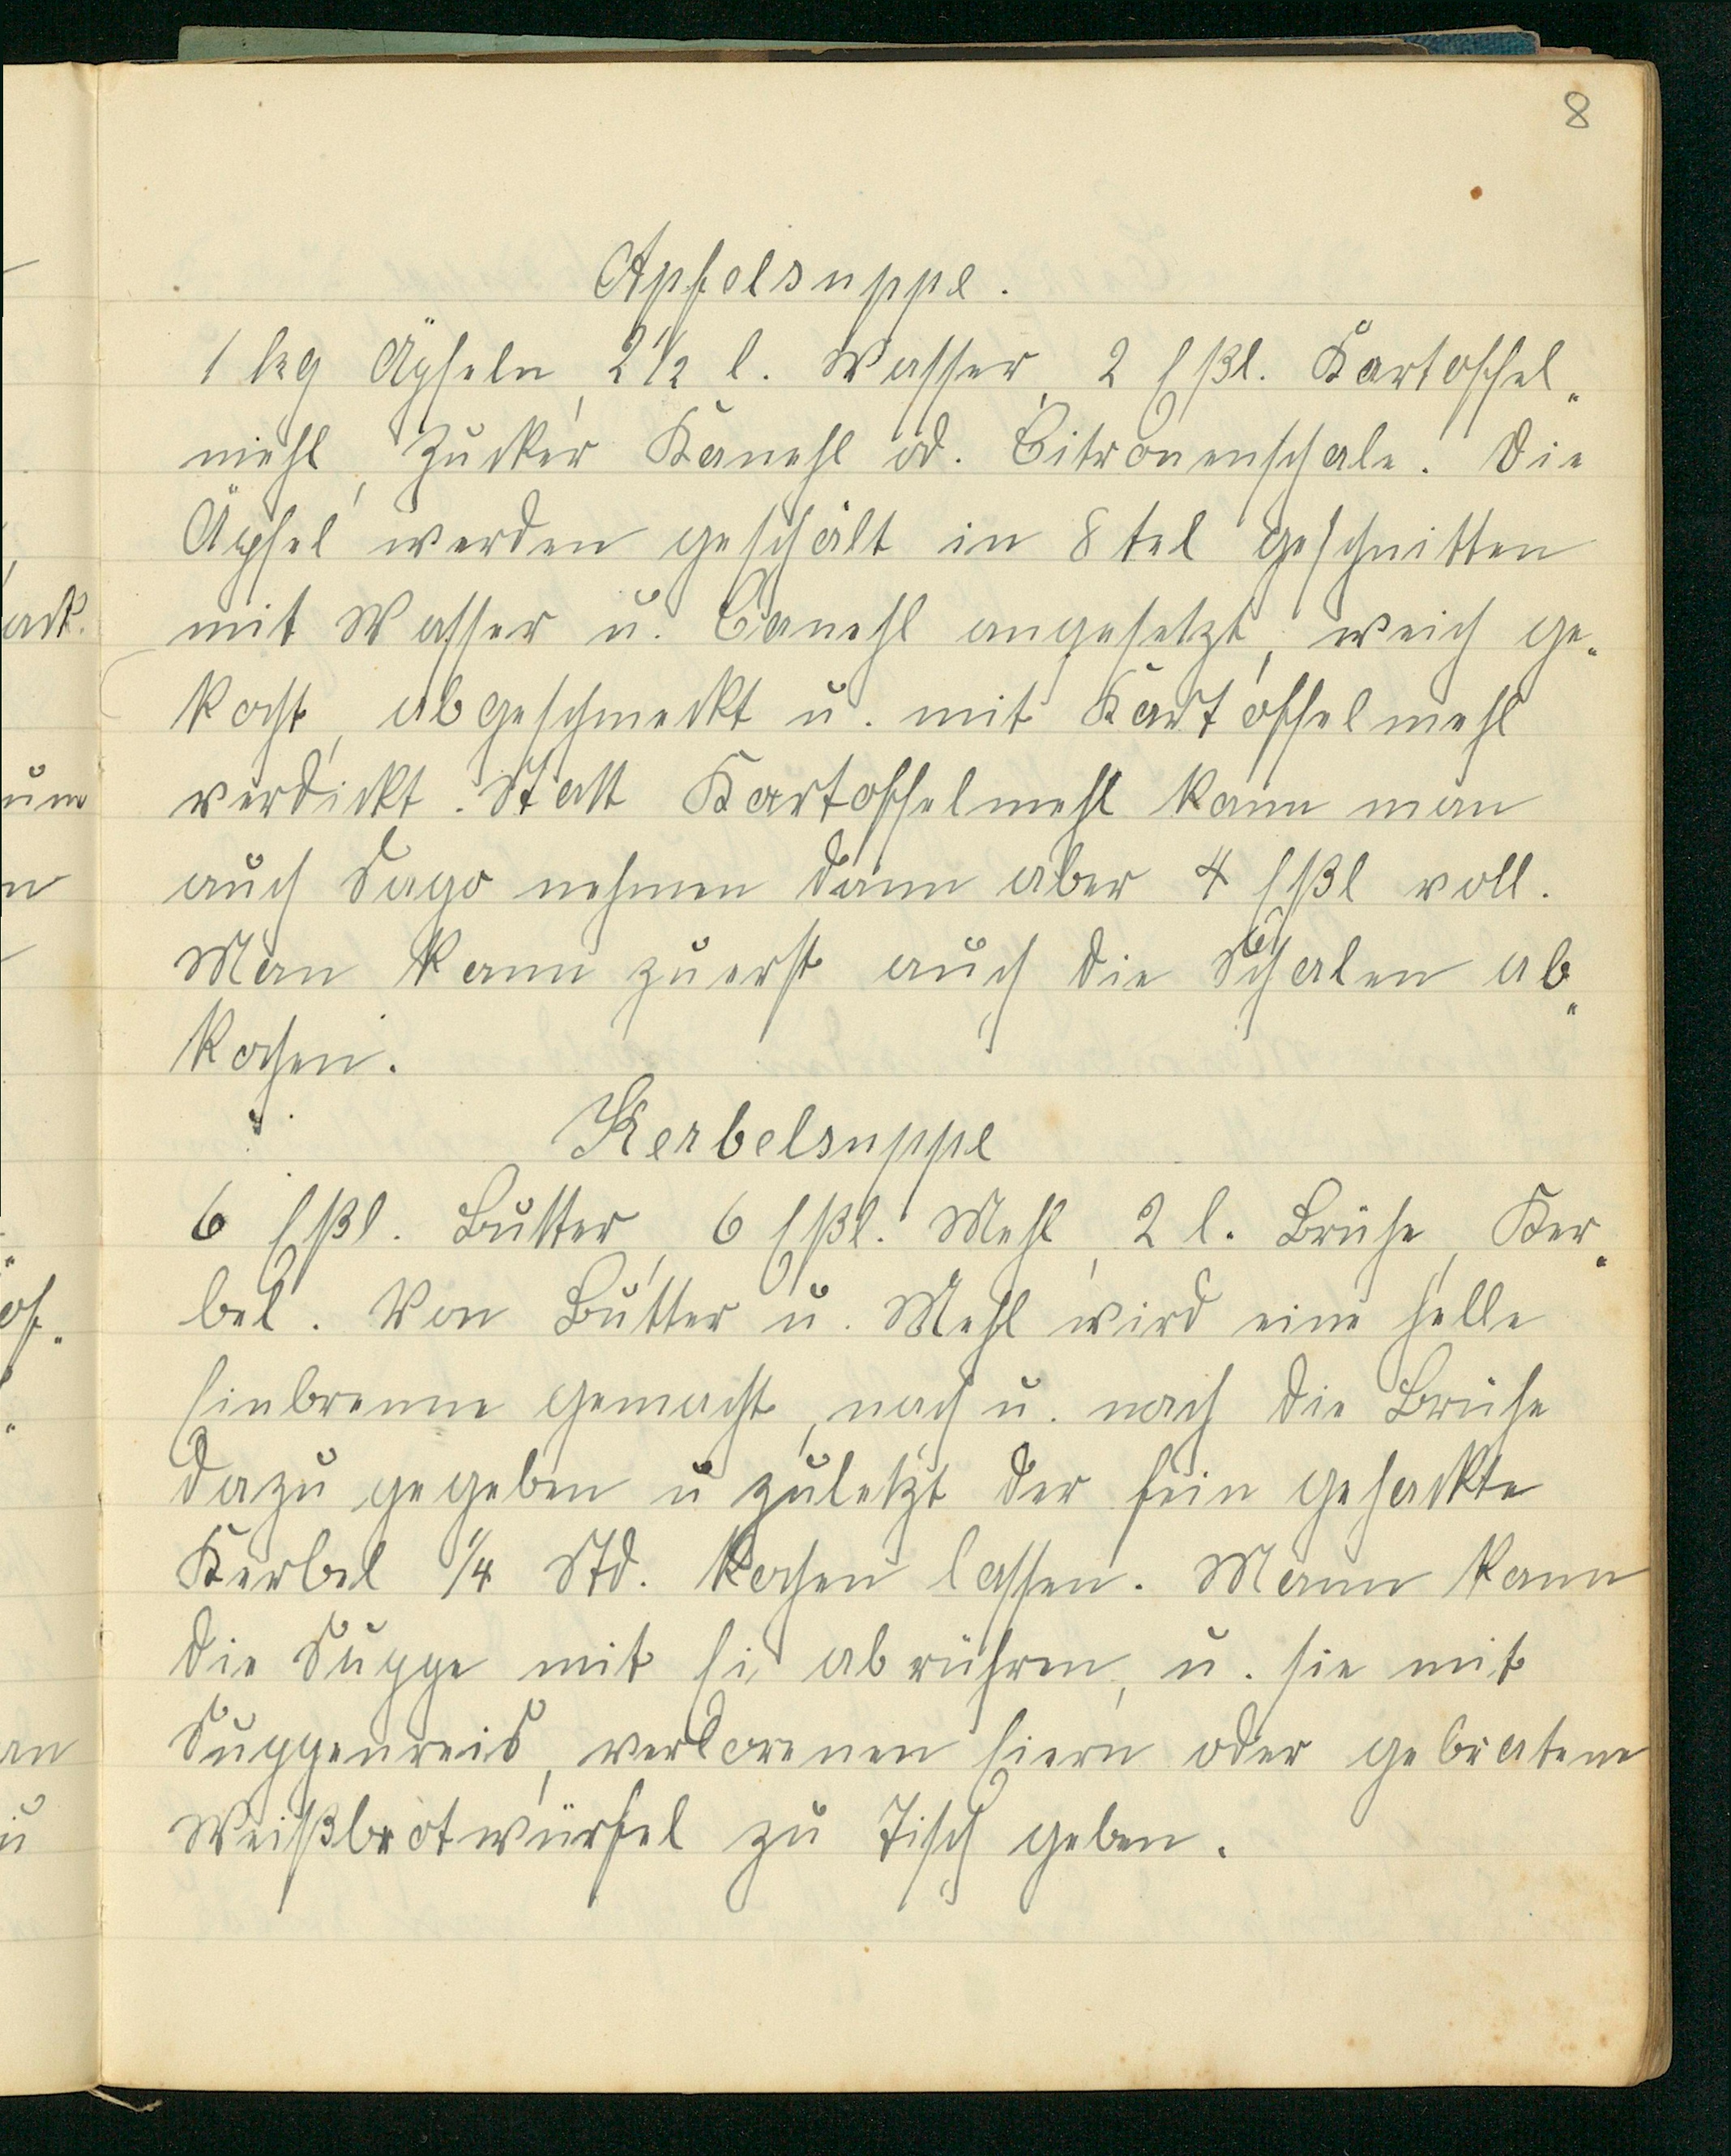 8
Apfelsuppe.
1 kg Äpfeln, 2 1/2 l. Wasser, 2 Eßl. Kartoffel„
mehl, Zucker Kanehl od. Citronenschale. Die
Äpfel werden geschält in 8tel geschnitten
mit Wasser u. Canehl angesetzt, weich ge„
kocht, abgeschmeckt u. mit Kartoffelmehl
verdickt. Statt Kartoffelmehl kann man
auch Sago nehmen dann aber 4 Eßl voll.
Man kann zuerst auch die Schalen ab„
kochen.
Kerbelsuppe
6 Eßl. Butter, 6 Eßl. Mehl, 2 l. Brühe, Ker„
bel. Von Butter u. Mehl wird eine helle
Einbrenne gemacht, nach u. nach die Brühe
dazu gegeben u zuletzt der fein gehackte
Kerbel 1/4 Std. kochen lassen. Mann kann
die Suppe mit Ei abrühren, u. sie mit
Suppenreis, verlorenen Eiern oder gebratene
Weißbrotwürfel zu Tisch geben.